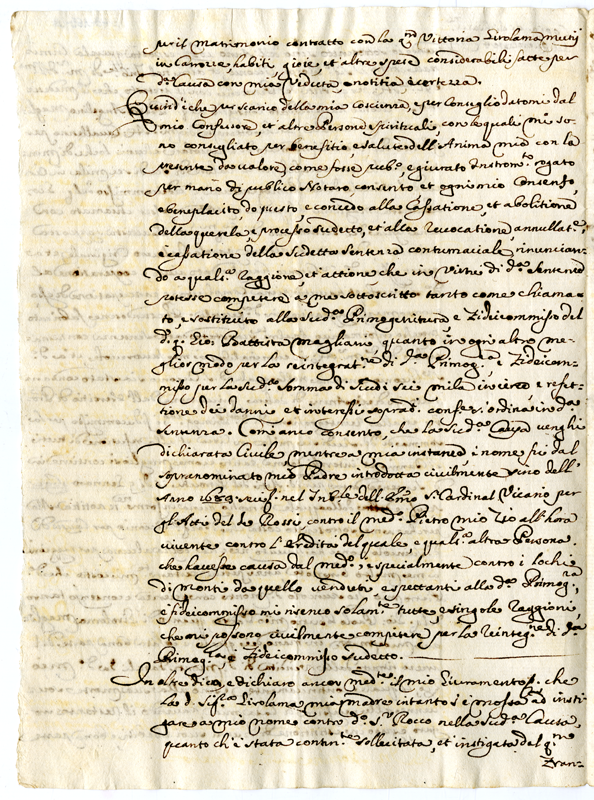 per il matrimonio contratto con la q.m Vittoria Girolama Mutij
in Carozze, habiti, gioie, et altre spese considerabili fatte per
d.a Causa con mia veduta e notitia e certezza.
Quindi che per scarico della mia coscienza, e per Consiglio datomi dal
mio Confessore, et altre Persone spirituali, con le quali mi so-
no consigliato per benefitio, e salute dell'Anima mia con la
presente da valere come fosse pub.o, e giurato Instrom.to rogato
per mano di publico Notaro consento et ogni mio Consenso,
e beneplacito do presto, e concedo alla Cassatione, et abolitione
della querela, e processo sudetto, et alla Revocatione, annullat.e,
e cassatione della sudetta Sentenza contumaciale, rinuncian-
do a quals.a Raggione, et attione che in virtù di d.a Sentenza
potesse competere a me sottoscritto tanto come chiama-
to, e sostituito alla sud.a Primogenitura e Fideicommisso del
d. q. Gio: Battista Magliani quanto in ogni altro me-
glior modo per la reintegrat.ne di d.a Primog.ra e Fideicom-
misso per la sud.a Somma di scudi sei mila in circa e refet-
tione dei danni et interessi ordina in d.a
Sentenza. Come anco consento, che la sud.a Causa venghi
dichiarata Civile mentre a mia instanza e nome fù dal
sopranominato mio Padre introdotta civilmente sino dell'
Anno 1683 nel Trib.le dell' Em.o S. Cardinal Vicario per
gl'Atti del de Rossi, contro il med.o Pietro mio Zio all'hora
vivente contro l'Eredità del quale, e quals.a altra Persona
che havesse causa dal med.o, e specialmente contro i lochi
di Monti da quello venduti, e spettanti alla d.a Primog.ra,
e fideicommisso mi riservo solam.te tutte, e singole Raggioni,
che mi possono civilmente competere per la Reinteg.ne di d.a
Primog.ra, e Fideicommisso sudetto.
In oltre dico, e dichiaro ancor med.te il mio Giuramento, che
la d. Sig.ra Girolama mia Madre intanto si è mossa ad insti-
gare a mio nome contro d. S.r Rocco nella sud.a Causa,
quanto ch'è stata contin.te sollecitata, et instigata del q.m
Fran-